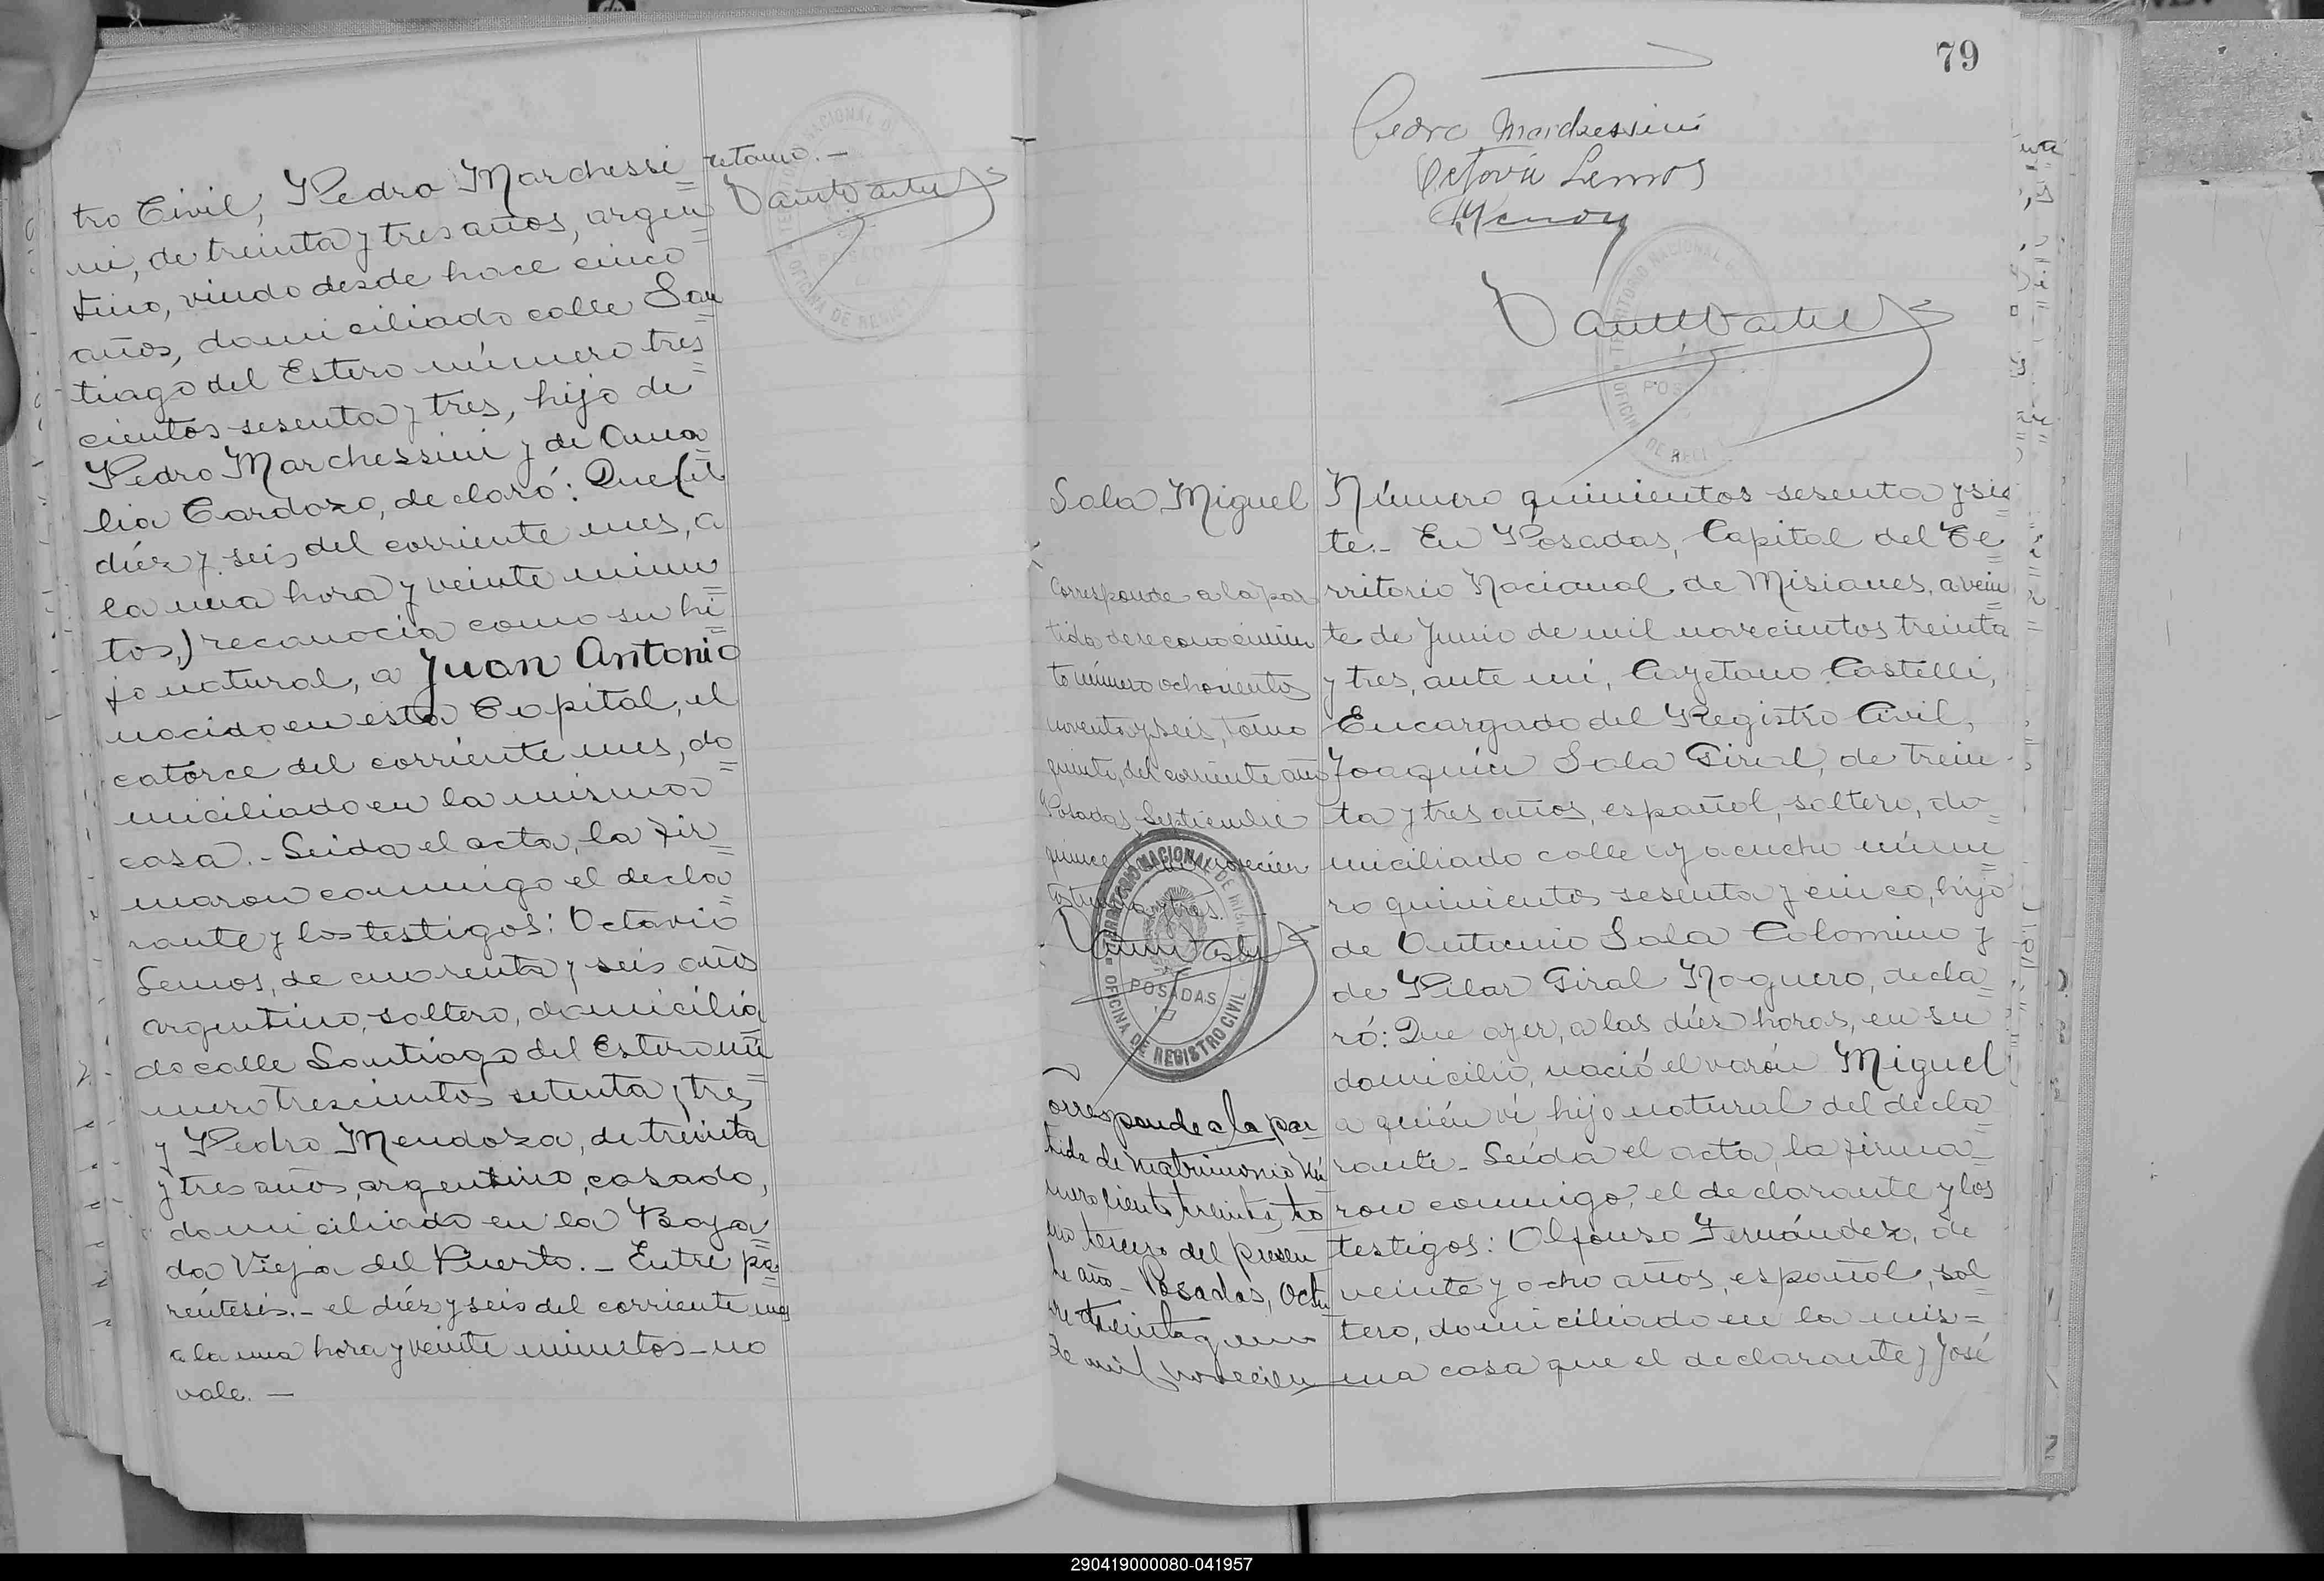 tro Civil, Pedro Marchessi=
ni, de treinta y tres años, argen=
tino, viudo desde hace cinco
años, domiciliado calle San=
tiago del Estero número tres=
cientos sesenta y tres, hijo de
Pedro Marchessini y de Ama=
lia Cardozo, declaró: Que (el
diéz y seis del corriente mes, a
la una hora y veinte minu=
tos,) reconocia como su hi=
jo natural, a Juan Antonio
nacido en esta Capital, el
catorce del corriente mes, do=
miciliado en la misma
casa.- Leida el acta, la fir=
maron conmigo el decla=
rante y los testigos: Octavio
Lemos, de cuarenta y seis años
argentino, soltero, domicilia=
do calle Santiago del Estero nú=
mero trescientos setenta y tres
y Pedro Mendoza, de treinta
y tres años, argentino, casado,
domiciliado en la Baja=
da Vieja del Puerto.- Entre pa=
réntesis.- el diéz y seis del corriente mes
a la una hora y veinte minutos - no
vale.-
79
Pedro Marchessini
Octavio Lemos
POSADAS
Sala Miguel
Corresponde a la par
tida de reconocimien
to número ochocientos
noventa y seis, tomo
quinto, del corriente año
Posadas, Septiembre
quince
TERRITORIO NACIONAL DE MISIONES
POSADAS
OFICINA DE REGISTRO CIVIL
Corresponde a la par
tida de matrimonio Nú
mero ciento treinta, to
mo tercero del presen
te año - Posadas, Octu
bre treinta y uno
de mil novecien
Número quinientos sesenta y sie
te.- En Posadas, Capital del Te=
rritorio Nacional de Misiones, a vein=
te de Junio de mil novecientos treinta
y tres, ante mi, Cayetano Castelli,
Encargado del Registro Civil,
Joaquín Sala Giral, de trein-
ta y tres años, español, soltero, do=
miciliado calle Ayacucho núme=
ro quinientos sesenta y cinco, hijo
de Antonio Sala Colomino y
de Pilar Giral Noguero, decla=
ró: Que ayer, a las diéz horas, en su
domicilio, nació el varón Miguel
a quién ví, hijo natural del decla=
rante.- Leída el acta, la firma=
ron conmigo, el declarante y los
testigos: Alfonso Fernández, de
veinte y ocho años, español, sol=
tero, domiciliado en la mis=
ma casa que el declarante y José
290419000080-041957